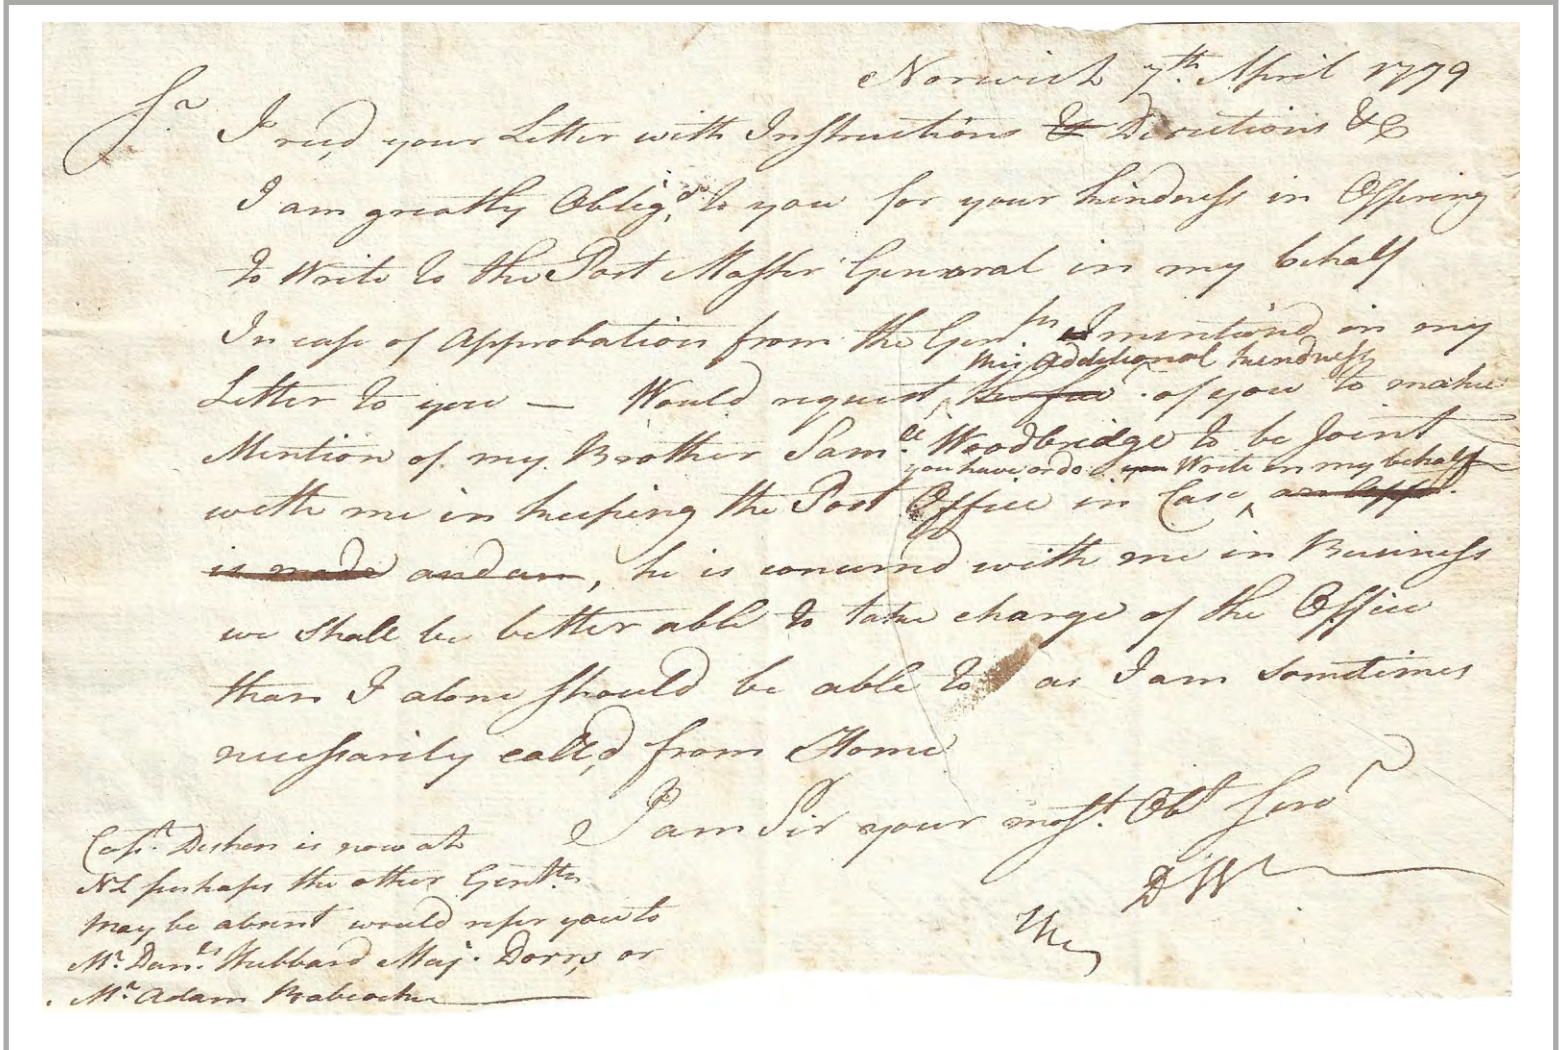 Norwich 7th. April 1779
Sr. I recd, your Letter with Instructions & Directions &C
I am greatly Oblig,d to you for your kindness in Offering
to Write to the Post Master General in my behalf
In case of Approbation from the Gentn I mention'd in my
this additional kindness
Letter to you — Would request, the fav of you to make
Mention of my Brother Saml. Woodbridge to be Joint
you have or do you Write in my behalf
with me in keeping the Post Office in Case ^ an app.
is made and am, he is concernd with me in Business
we shall be better able to take charge of the Office
than I alone should be able to as I am sometimes
necessarily call,d from Home
I am Sir your most. Obt Servt
DW
Capt. Deshon is now at
NL perhaps the other Gentln
may be absent would refer you to
Mr. Danl. Hubbard Maj. Dorry or
Mr. Adam Babcocke